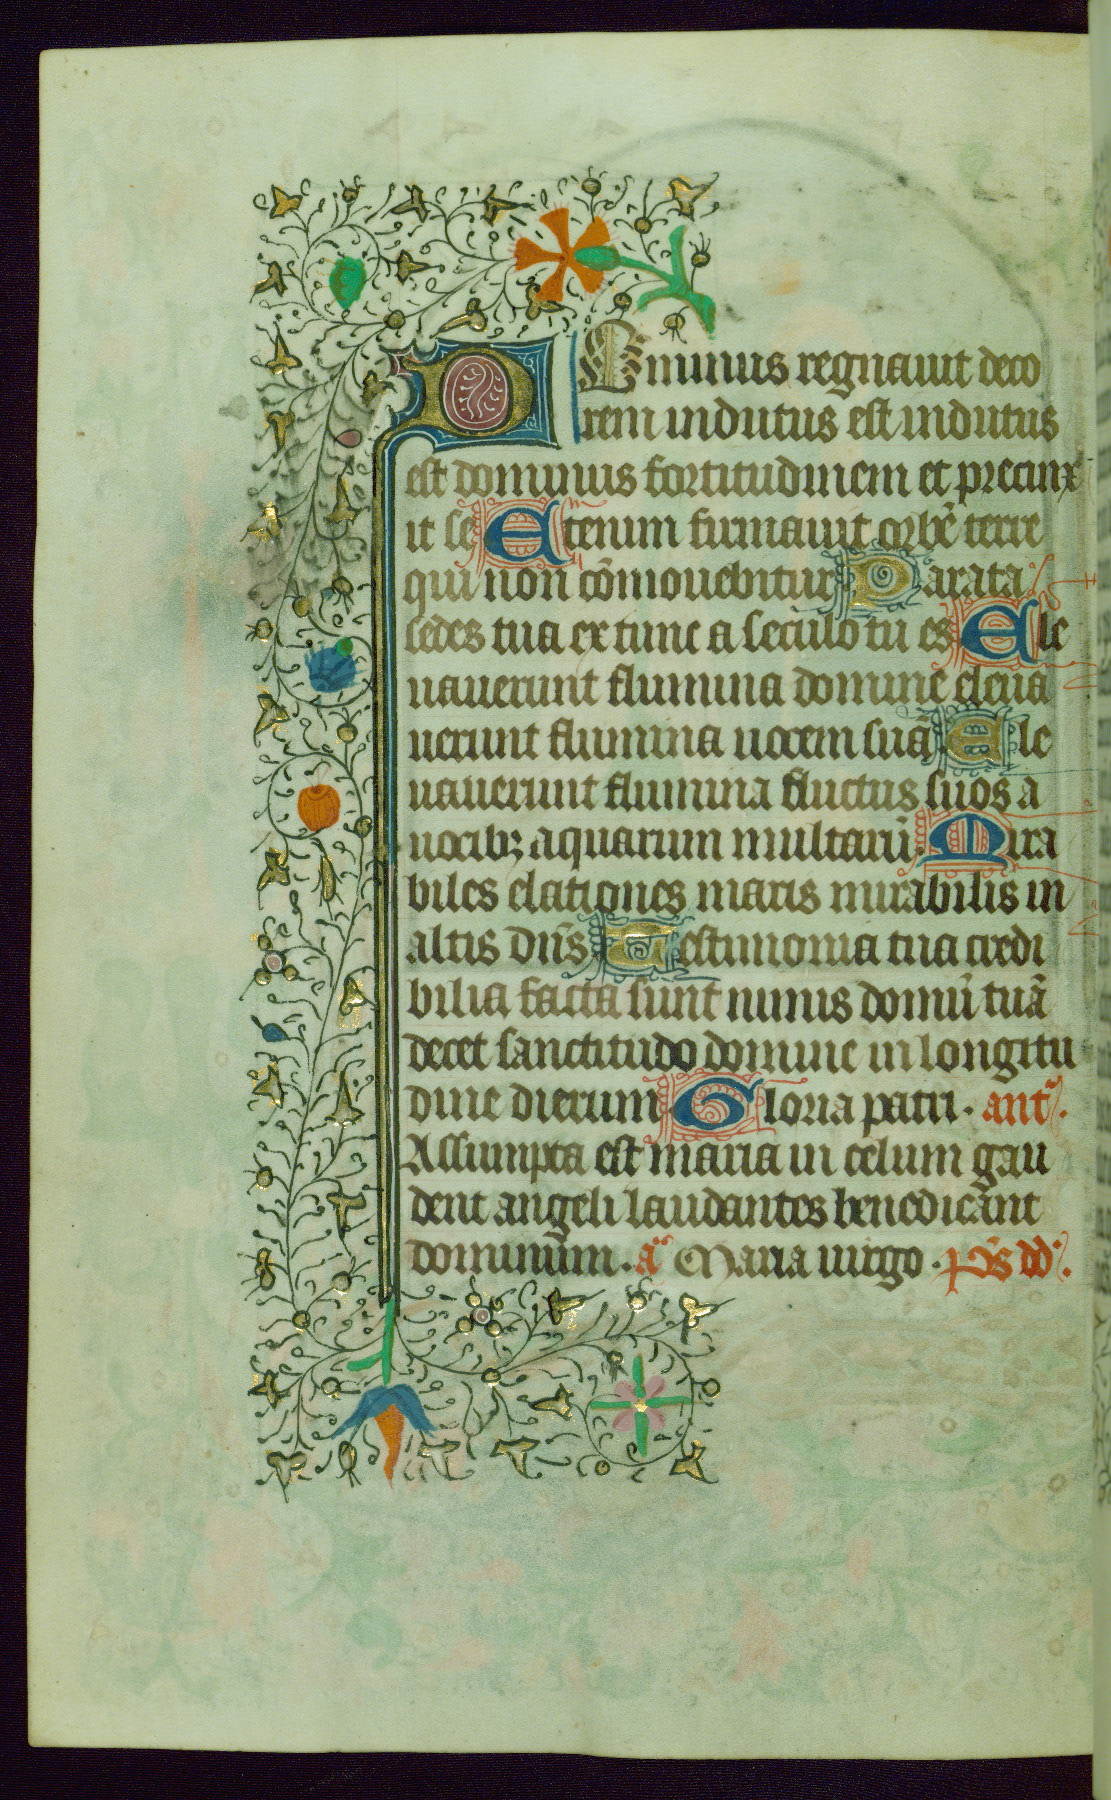 Dominus regnauit deco
rem indutus est indutus
est dominus fortitudinem et precinx
it se Etenim firmauit orbē terre
qui non cōmouebitur Parata
sedes tua ex tunc a seculo tu es Ele
uauerunt flumina domine eleua
uerunt flumina uocem suā Ele
uauerunt flumina fluctus suos a
uocibꝫ aquarum multarū Mira
biles elationes maris mirabilis in
altis dn̄s Testimonia tua credi
bilia facta sunt nimis domū tuā
decet sanctitudo domine in longitu
dine dierum Gloria patri. ant̄.
Assumpta est maria in celum gau
dent angeli laudantes benedicant
dominum. a Maria uirgo. p̄s dd.